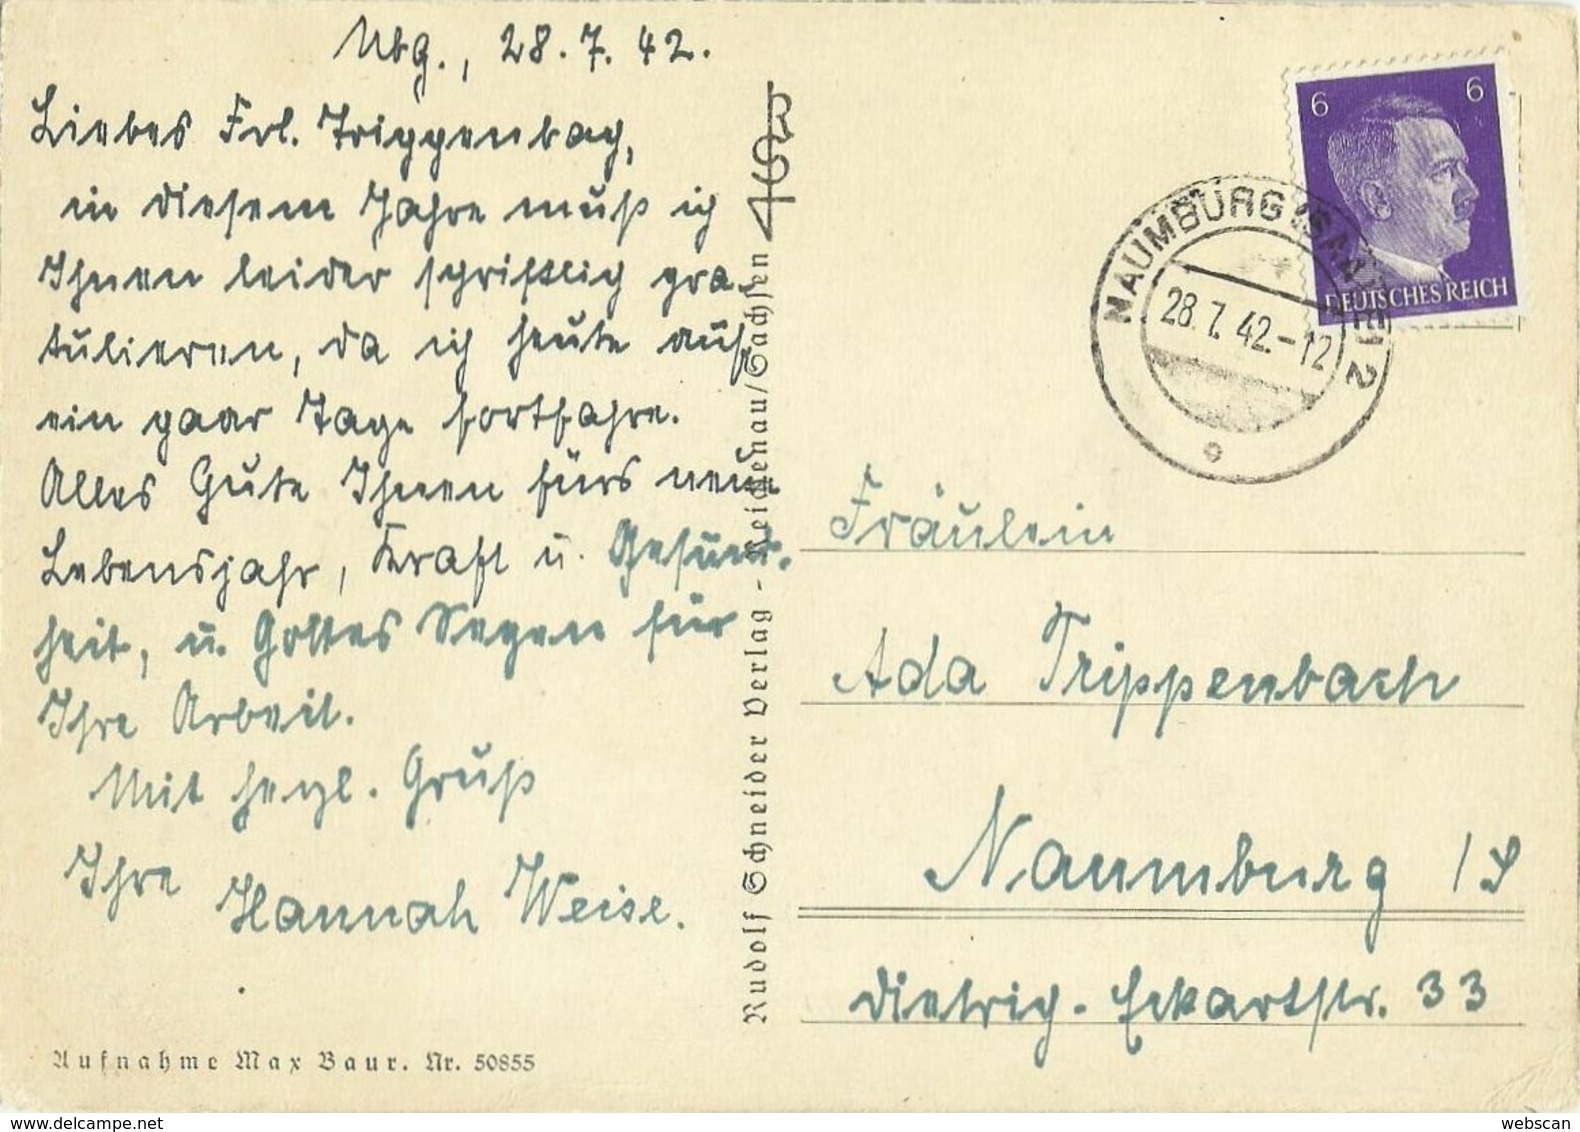 Nbg., 28.7.42.
Liebes Frl. Trippenbach,
in diesem Jahre muß ich
Ihnen leider schriftlich gra-
tulieren, da ich heute auf
ein paar Tage fortfahre.
Alles Gute Ihnen fürs neue
Lebensjahr, Kraft u. Gesund-
heit, u. Gottes Segen für
Ihre Arbeit.
Mit herzl. Gruß
Ihre Hannah Weise.
Aufnahme Max Baur. Nr. 50855
Rudolf Schneider Verlag - Reichenau/Sachsen
6 6
DEUTSCHES REICH
NAUMBURG (SAALE) 2
28.7.42.-12
Fräulein
Ada Trippenbach
Naumburg /S
Dietrich-Eckartstr. 33
webscan
webscan